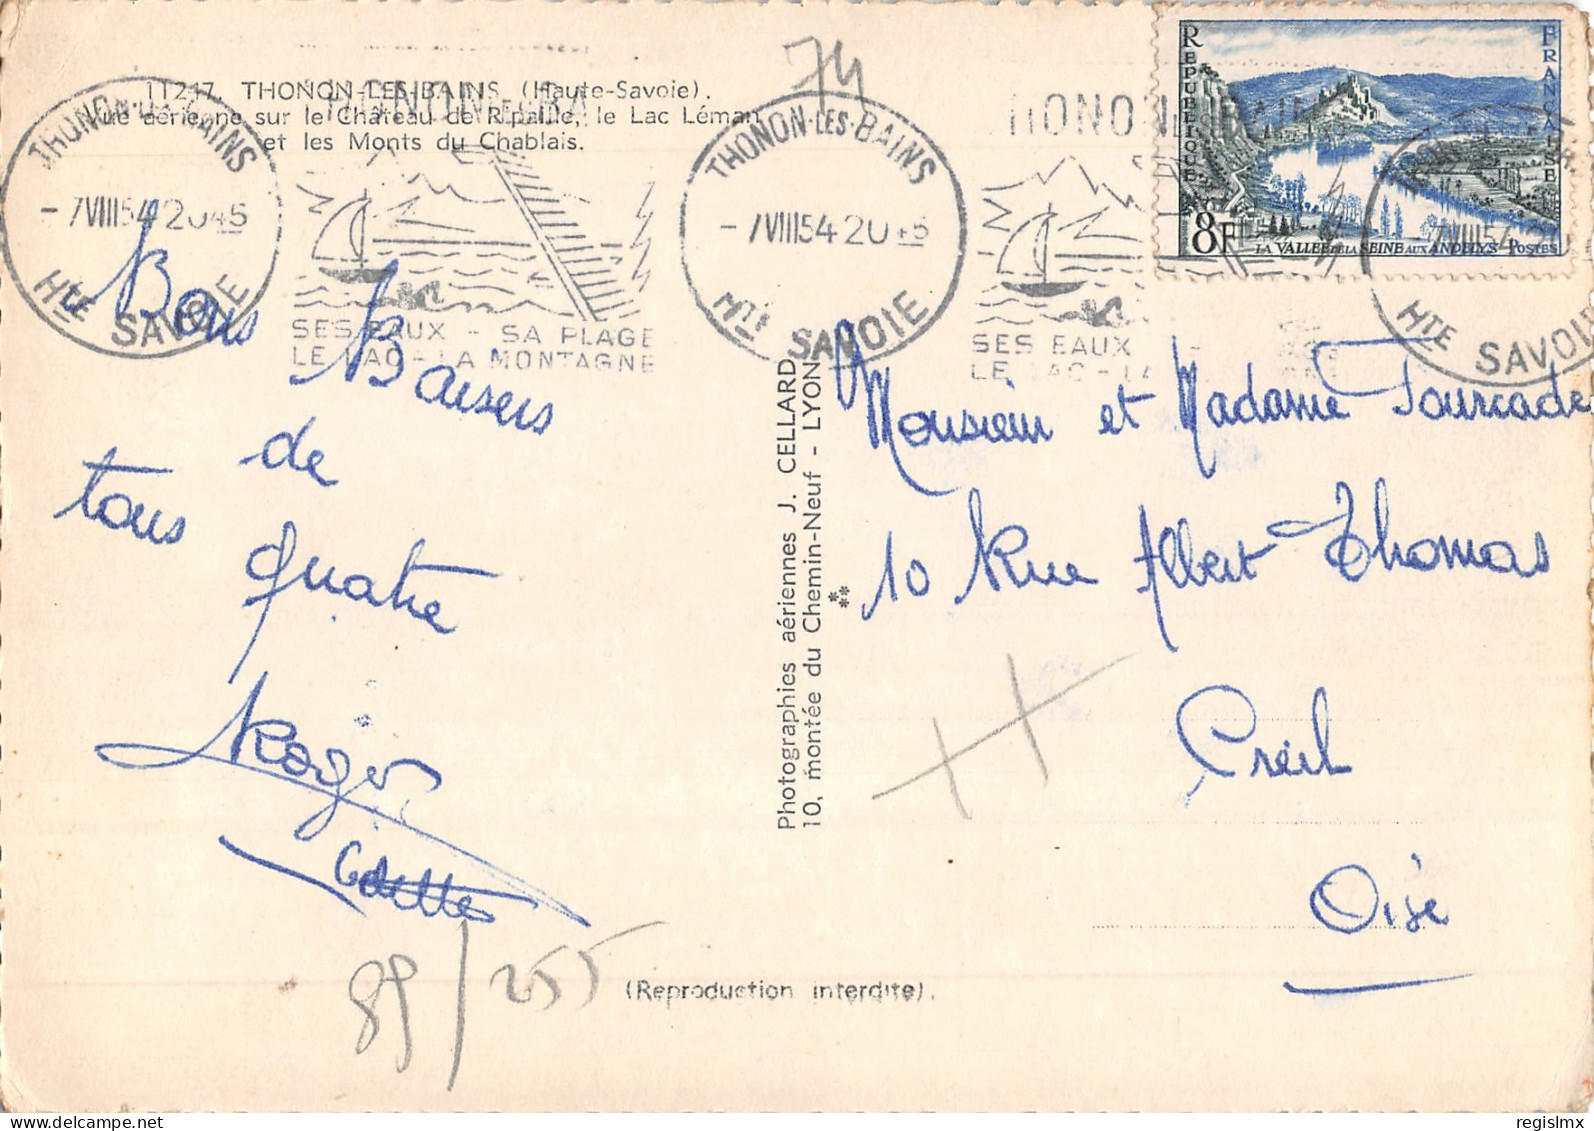 11217. THONON-LES-BAINS (Haute-Savoie).
Vue aérienne sur le Château de Ripaille, le Lac Léman
et les Monts du Chablais.
74
THONON-LES-BAINS
-7VIII54 2045
Hte SAVOIE
SES EAUX - SA PLAGE
LE LAC - LA MONTAGNE
THONON-LES-BAINS
-7VIII54 20 45
Hte SAVOIE
SES EAUX
LE LAC - LA
REPUBLIQUE FRANÇAISE
8F
LA VALLEE DE LA SEINE AUX ANDELYS POSTES
-7VIII54 20
Hte SAVOIE
Bons Baisers
de
tous quatre
Roger
Odette
89/255
Photographies aériennes J. CELLARD
10, montée du Chemin-Neuf - LYON
Monsieur et Madame Fourcade
10 Rue Albert Thomas
Creil
Oise
(Reproduction interdite).
regislmx